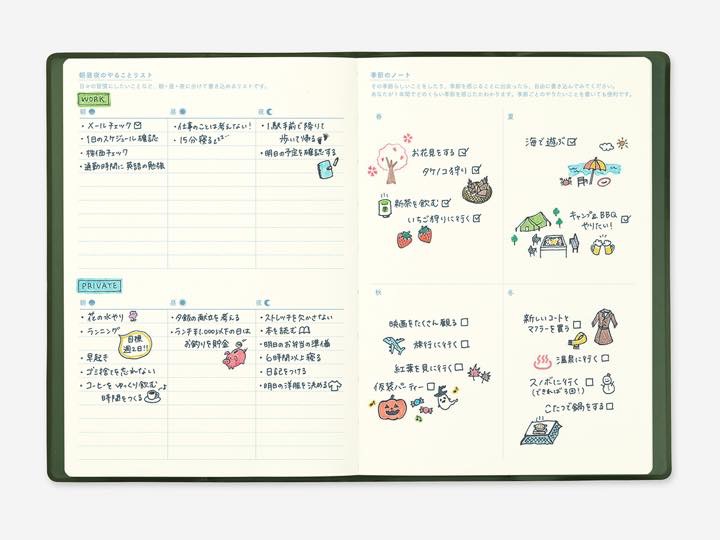 朝昼夜のやることリスト
日々の習慣にしたいことなど、朝・昼・夜に分けて書き込めるリストです。
WORK
朝
・メールチェック
・1日のスケジュール確認
・株価チェック
・通勤時間に英語の勉強
昼
・仕事のことは考えない!
・15分寝る
夜
・1駅手前で降りて
歩いて帰る
・明日の予定を確認する
PRIVATE
朝
・花の水やり
・ランニング
目標
週2日!!
・早起き
・ゴミ捨てを忘れない
・コーヒーをゆっくり飲む
時間をつくる
昼
・夕飯の献立を考える
・ランチ¥1,000以下の日は
お釣りを貯金
夜
・ストレッチを欠かさない
・本を読む
・明日のお弁当の準備
・6時間以上寝る
・日記をつける
・明日の洋服を決める
季節のノート
その季節らしいことをしたり、季節を感じることに出会ったら、自由に書き込んでみてください。
あなたが1年間でどのくらい季節を感じたかわかります。季節ごとのやりたいことを書いても便利です。
春
お花見をする
タケノコ狩り
新茶を飲む
いちご狩りに行く
夏
海で遊ぶ
キャンプ&BBQ
やりたい!
秋
映画をたくさん観る
旅行に行く
紅葉を見に行く
仮装パーティー
冬
新しいコートと
マフラーを買う
温泉に行く
スノボに行く
(できれば3回!)
こたつで鍋をする